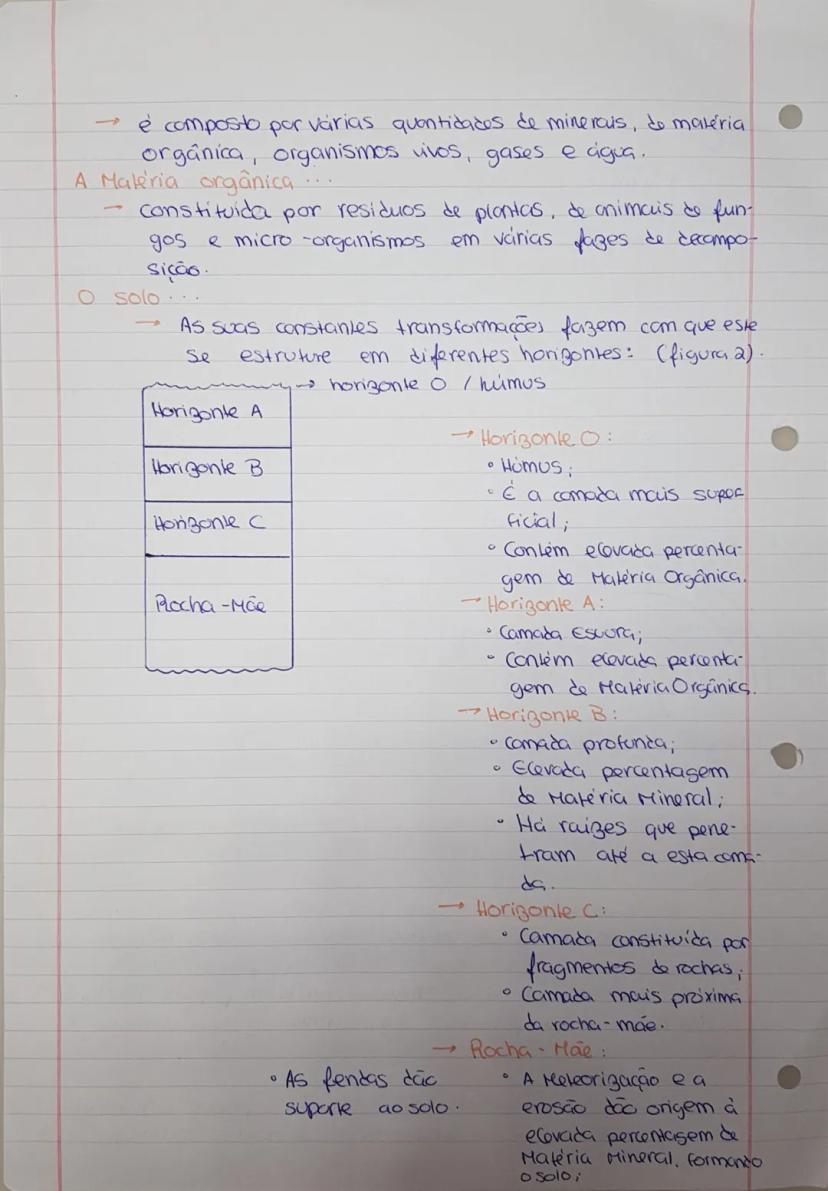 → é composto por várias quantidades de minerais, de matéria
orgânica, organismos vivos, gases e água.
A Matéria orgânica ...
→ constituída por residuos de plantas, de animais de fun-
gos e micro-organismos em várias fazes de decompo-
sição.
O solo ...
→ As suas constantes transformações fazem com que este
se estruture em diferentes horizontes: (figura 2).
→ horizonte O / húmus
Horizonte A
Horizonte B
Horizonte C
Rocha-Mãe
→ Horizonte O:
• Húmus;
• É a camada mais super
ficial;
• Contém elevada percenta-
gem de Matéria Orgânica.
→ Horizonte A:
• Camada Escura;
• Contém elevada percenta-
gem de Matéria Orgânica.
→ Horizonte B:
• Camada profunda;
• Elevada percentagem
de Matéria Mineral;
• Há raizes que pene-
tram até a esta cama-
da.
→ Horizonte C:
• Camada constituída por
fragmentos de rochas;
• Camada mais próxima
da rocha-mãe.
→ Rocha-Mãe:
• A Meteorização e a
erosão dão origem à
elevada percentagem de
Matéria Mineral, formando
o solo;
• As fendas dão
suporte ao solo.